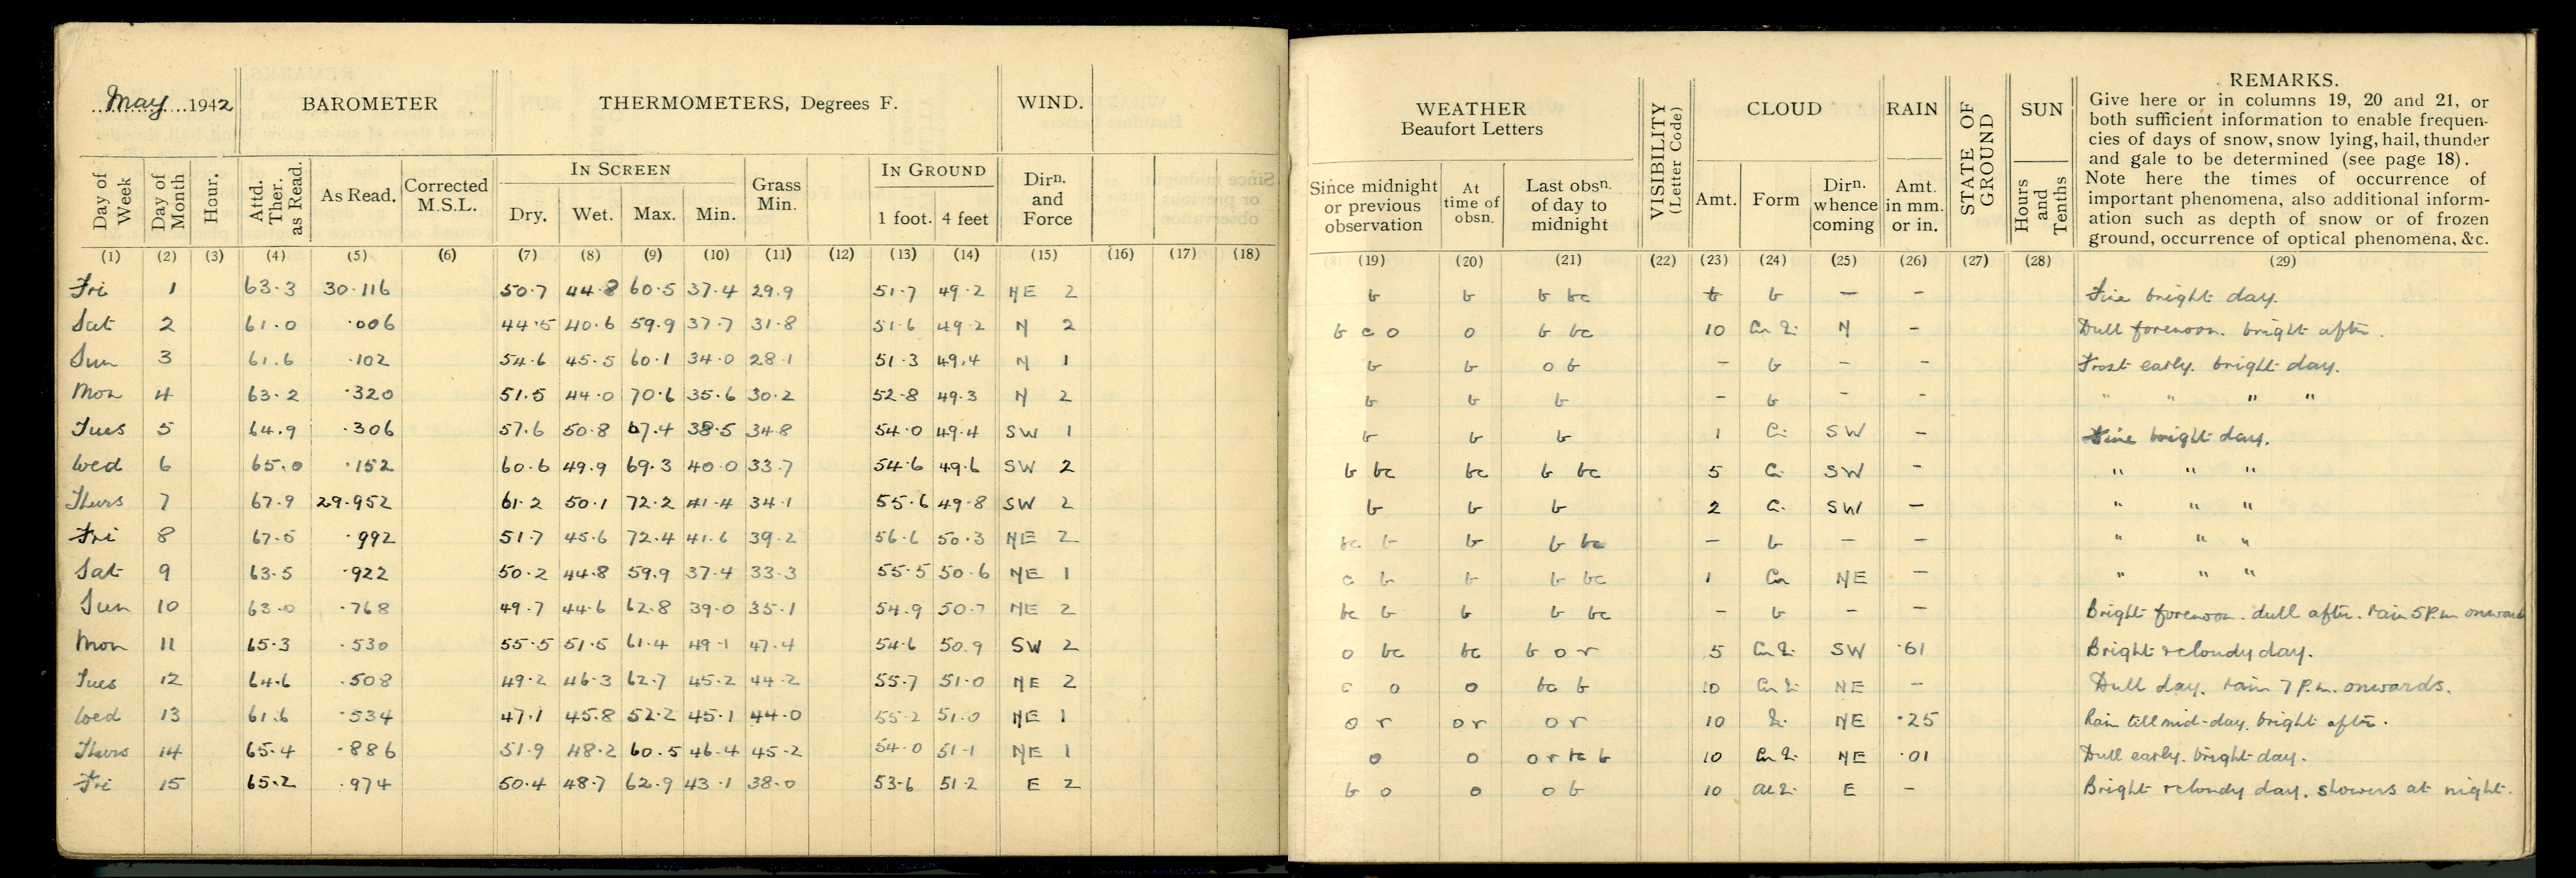 May 1942
BAROMETER
THERMOMETERS, Degrees F.
WIND.
IN SCREEN
IN GROUND
Day of Week
Day of Month
Hour.
Attd. Ther. as Read.
As Read.
Corrected M.S.L.
Dry.
Wet.
Max.
Min.
Grass Min.
1 foot.
4 feet
Dirn. and Force
(1) (2) (3) (4) (5) (6) (7) (8) (9) (10) (11) (12) (13) (14) (15) (16) (17) (18)
Fri 1 63.3 30.116 50.7 44.8 60.5 37.4 29.9 51.7 49.2 NE 2
Sat 2 61.0 .006 44.5 40.6 59.9 37.7 31.8 51.6 49.2 N 2
Sun 3 61.6 .102 54.6 45.5 60.1 34.0 28.1 51.3 49.4 N 1
Mon 4 63.2 .320 51.5 44.0 70.6 35.6 30.2 52.8 49.3 N 2
Tues 5 64.9 .306 57.6 50.8 67.4 38.5 34.8 54.0 49.4 SW 1
Wed 6 65.0 .152 60.6 49.9 69.3 40.0 33.7 54.6 49.6 SW 2
Thurs 7 67.9 29.952 61.2 50.1 72.2 41.4 34.1 55.6 49.8 SW 2
Fri 8 67.5 .992 51.7 45.6 72.4 41.6 39.2 56.6 50.3 NE 2
Sat 9 63.5 .922 50.2 44.8 59.9 37.4 33.3 55.5 50.6 NE 1
Sun 10 63.0 .768 49.7 44.6 62.8 39.0 35.1 54.9 50.7 NE 2
Mon 11 65.3 .530 55.5 51.5 61.4 49.1 47.4 54.6 50.9 SW 2
Tues 12 64.6 .508 49.2 46.3 62.7 45.2 44.2 55.7 51.0 NE 2
Wed 13 61.6 .534 47.1 45.8 52.2 45.1 44.0 55.2 51.0 NE 1
Thurs 14 65.4 .886 51.9 48.2 60.5 46.4 45.2 54.0 51.1 NE 1
Fri 15 65.2 .974 50.4 48.7 62.9 43.1 38.0 53.6 51.2 E 2
WEATHER
Beaufort Letters
VISIBILITY (Letter Code)
CLOUD
RAIN
STATE OF GROUND
SUN
REMARKS.
Give here or in columns 19, 20 and 21, or
both sufficient information to enable frequen-
cies of days of snow, snow lying, hail, thunder
and gale to be determined (see page 18).
Note here the times of occurrence of
important phenomena, also additional inform-
ation such as depth of snow or of frozen
ground, occurrence of optical phenomena, &c.
Since midnight or previous observation
At time of obsn.
Last obsn. of day to midnight
Amt.
Form
Dirn. whence coming
Amt. in mm. or in.
Hours and Tenths
(19) (20) (21) (22) (23) (24) (25) (26) (27) (28) (29)
b b b bc b b — – Fine bright day.
b c o o b bc 10 N – Dull forenoon. bright after.
b b o b – b – – Frost early. bright day.
b b b – b – – " " " "
b b b 1 Ci SW – Fine bright day.
b bc bc b bc 5 Ci SW – " " "
b b b 2 Ci SW – " " "
bc b b b bc – b – – " " "
c b b b bc 1 Cu NE – " " "
bc b b b bc – b – – Bright forenoon. dull after. rain 5 P.m onward
o bc bc b o r 5 SW .61 Bright & cloudy day.
c o o bc b 10 NE – Dull day. rain 7 P.m. onwards.
o r o r o r 10 NE .25 Rain till mid-day. bright after.
o o o r bc b 10 NE .01 Dull early. bright day.
b o o o b 10 E – Bright & cloudy day. showers at night.